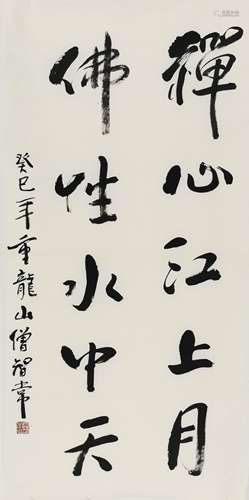 禪心江上月
佛性水中天
癸巳年重龍山僧智常